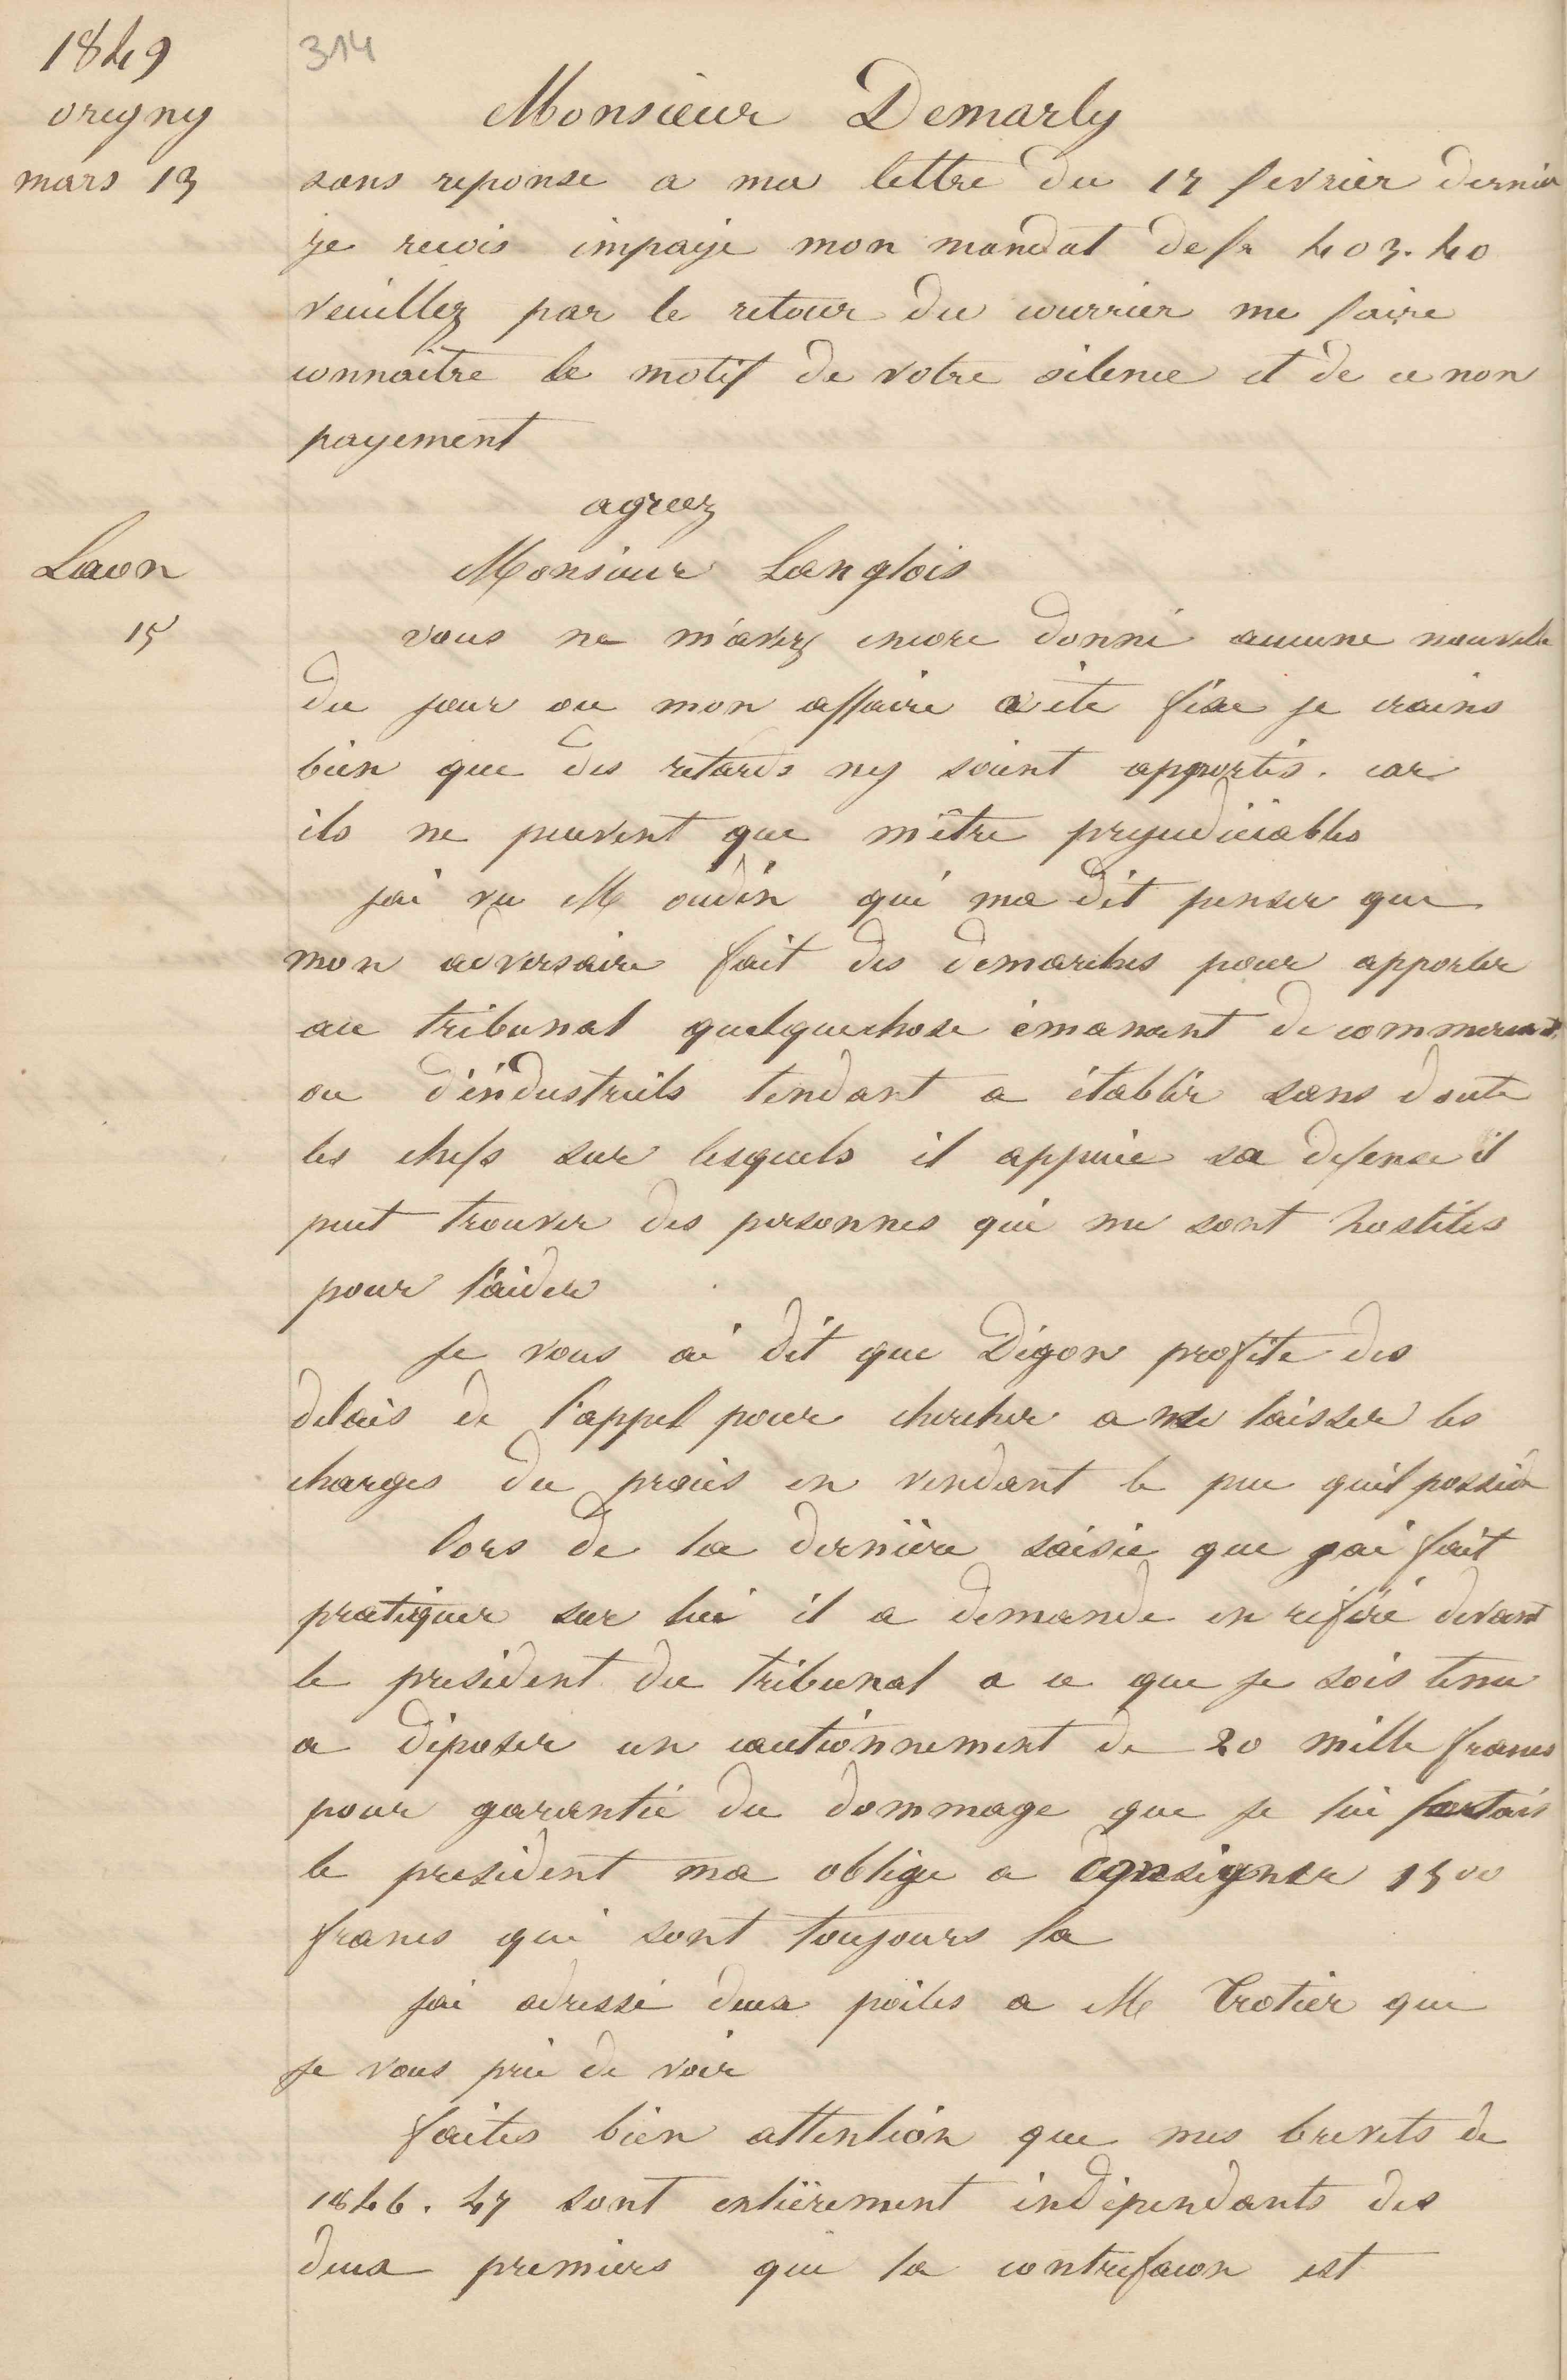 1849
314
origny
Monsieur Demarly
mars 13
sans reponse a ma lettre du 17 fevrier dernier
je recois impayé mon mandat de fr 403.40
veuillez par le retour du courrier me faire
connaître le motif de votre silence et de ce non
payement
agreez
Laon
Monsieur Langlois
15
vous ne m'avez encore donné aucune nouvelle
du jour ou mon affaire a été fixe je crains
bien que des retards ny soient apportés. car
ils ne peuvent que m'être prejudiciables
jai vu M oudin qui ma dit penser que
mon adversaire fait des demarches pour apporter
au tribunal quelquechose émanant de commercants
ou d'industriels tendant a établir sans doute
les chefs sur lesquels il appuie sa defense il
peut trouver des personnes qui me sont hostiles
pour l'aider
Je vous ai dit que Degon profite des
delais de l'appel pour chercher a me laisser les
charges du procès en vendant le peu quil possède
lors de la dernière saisie que jai fait
pratiquer sur lui il a demande en référé devant
le president du tribunal a ce que je sois tenu
a déposer un cautionnement de 20 mille francs
pour garantie du dommage que je lui
le president ma oblige a consigner 1500
francs qui sont toujours la
jai adressé deux poëles a M Trotier que
je vous prie de voir
faites bien attention que mes brevets de
1846.47 sont entièrement indépendants des
deux premiers que la contrefacon est